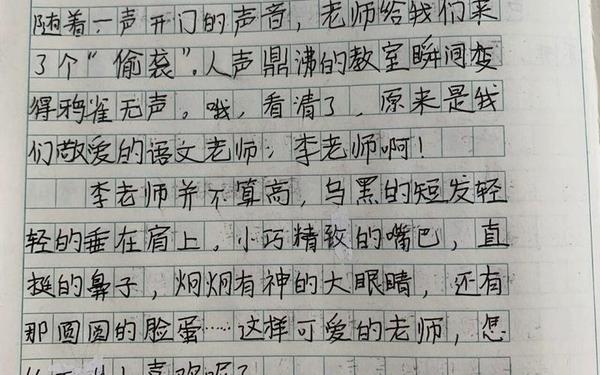 随着一声开门的声音，老师给我们来
了个“偷袭”.人声鼎沸的教室瞬间变
得鸦雀无声。哦，看清了，原来是我
们敬爱的语文老师；李老师啊！
李老师并不算高，乌黑的短发轻
轻的垂在肩上，小巧精致的嘴巴，直
挺的鼻子，炯炯有神的大眼睛，还有
那圆圆的脸蛋……这样可爱的老师，怎
喜欢呢？